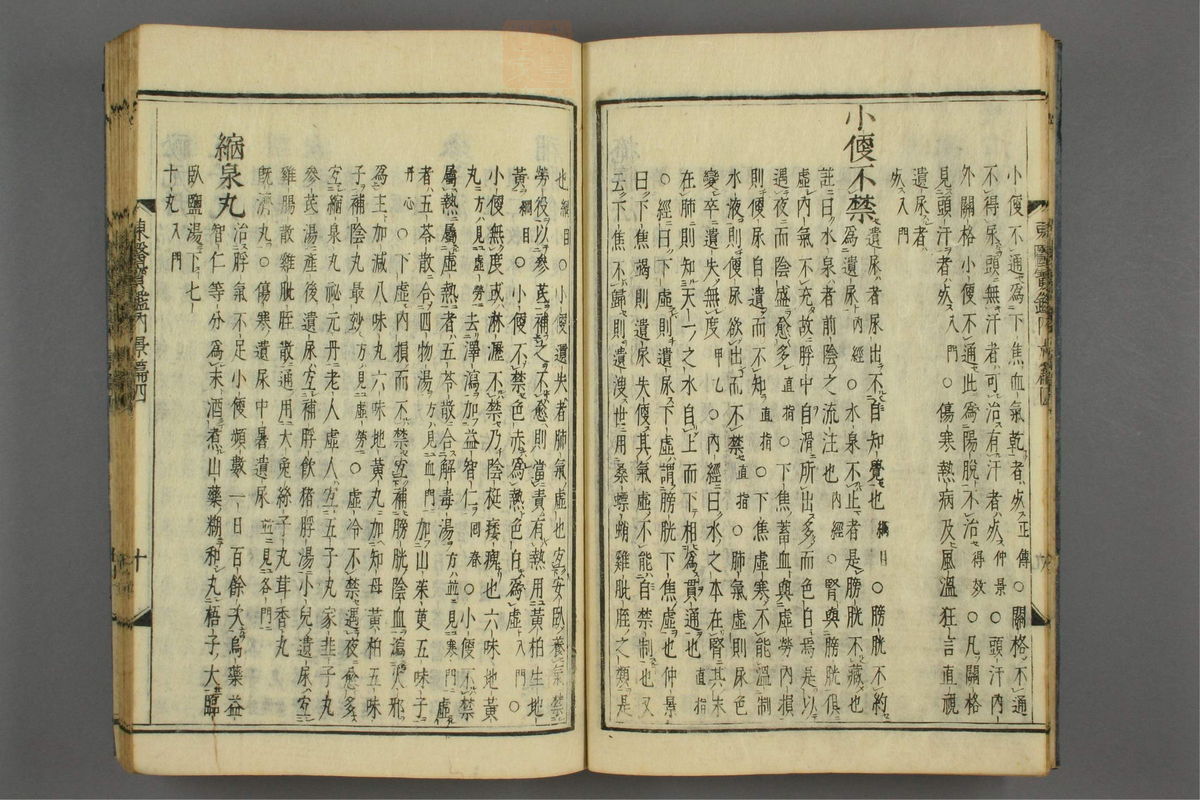 小便不通爲下焦血氣乾者死正傳○關格不通
不得尿頭無汗者可治有汗者死仲景○頭汗內
外關格小便不通此爲陽脫不治得效○凡關格
見頭汗者死入門○傷寒熱病及風溫狂言直視
遺尿者
死入門
小便不禁遺尿者尿出不自知覺也綱目○膀胱不約
爲遺尿內經○水泉不止者是膀胱不藏也
註曰水泉者前陰之流注也內經○腎與膀胱俱
虛內氣不充故脬中自滑所出多而色白焉是以
遇夜而陰盛愈多直指○下焦蓄血與虛勞內損
則便尿自遺而不知直指○下焦虛寒不能溫制
水液則便尿欲出而不禁直指○肺氣虛則尿色
變卒遺失無度甲乙○內經曰水之本在腎其末
在肺則知天一之水自上而下相爲貫通也直指
○經曰下虛則遺尿下虛謂膀胱下焦虛也仲景
曰下焦竭則遺尿失便其氣虛不能自禁制也又
云下焦不歸則遺溲世用桑螵蛸雞胵胵之類是
也綱目○小便遺失者肺氣虛也宜安臥養氣禁
勞役以參芪補之不愈則當責有熱用黃柏生地
黃綱目○小便不禁色赤爲熱色白爲虛入門○
小便無度或淋瀝不禁乃陰挺痿痺也六味地黃
丸方見虛勞去澤瀉加益智仁回春○小便不禁
屬熱屬虛熱者五苓散合解毒湯方並見寒門虛
者五苓散合四物湯方見血門加山茱萸五味子
丹心○下虛內損而不禁宜補膀胱陰血瀉火邪
爲主加減八味丸六味地黃丸加知母黃柏五味
子補陰丸最妙方見虛勞○虛冷不禁遇夜愈多
宜縮泉丸祕元丹老人虛人宜五子丸家韭子丸
參芪湯產後遺尿宜補脬飲猪脬湯小兒遺尿宜
雞腸散雞胵胵散通用大兔絲子丸茸香丸
旣濟丸○傷寒遺尿中暑遺尿並見各門
縮泉丸治脬氣不足小便頻數一日百餘次烏藥益
智仁等分爲末酒煮山藥糊和丸梧子大臨
臥鹽湯下七
十丸入門
東醫寶鑑內景篇四
十